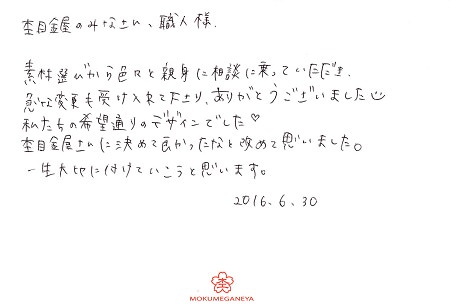 杢目金屋のみなさん、職人様.
素材選びから色々と親身に相談に乗っていただき.
急な変更も受け入れて下さり、ありがとうございました
私たちの希望通りのデザインでした♡
杢目金屋さんに決めて良かったなと改めて思いました。
一生大切に付けていこうと思います。
2016.6.30
杢
MOKUMEGANEYA